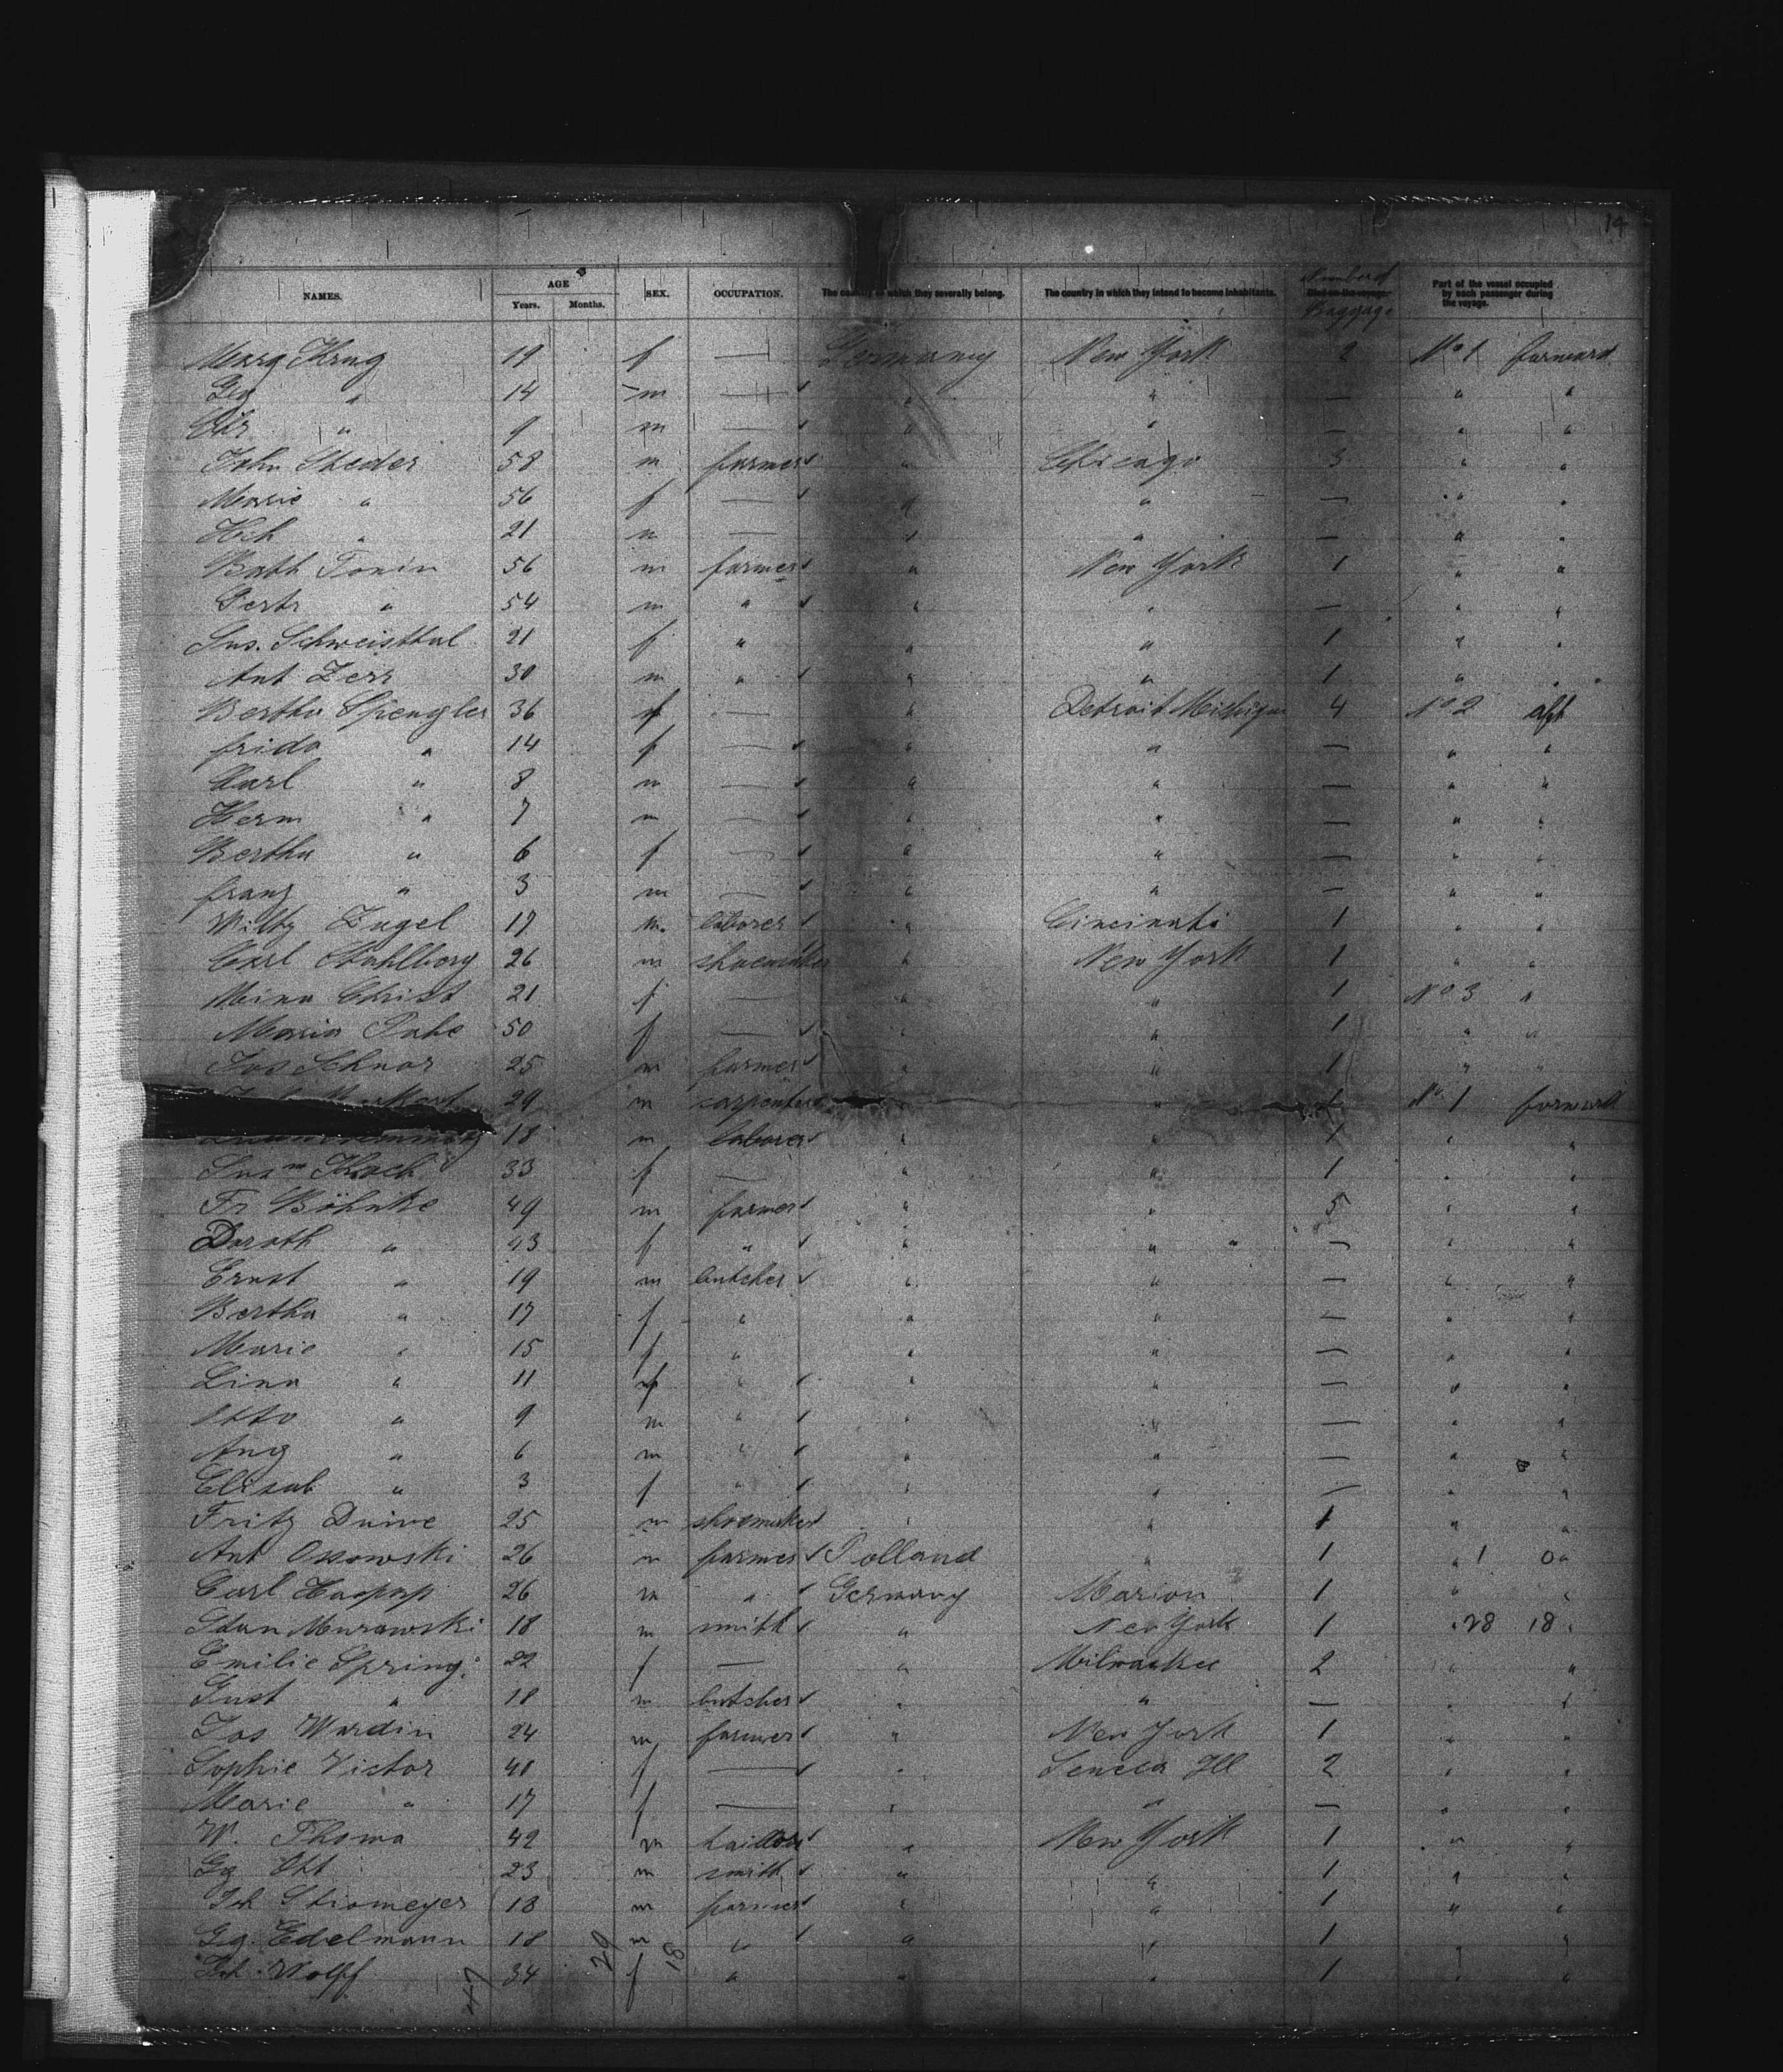 14
NAMES. AGE Years. Months. SEX. OCCUPATION. The country to which they severally belong. The country in which they intend to become inhabitants. Number of Died on the voyage. Baggage Part of the vessel occupied by each passenger during the voyage.
Marg Krug 19 f — Germany New York 2 No 1 forward
Geg " 14 m — " " — " "
Chr " 9 m — " " — " "
John 58 m farmer " Chicago 3 " "
Marie " 56 f — " " — " "
Hch " 21 m — " " — " "
56 m farmer " New York 1 " "
Gertr " 54 m " " " — " "
Sus. Schweisthal 21 f " " " 1 " "
Ant Zerr 30 m " " " 1 " "
Bertha Spengler 36 f — " Detroit Michigan 4 No 2 aft
frida " 14 f — " " — " "
Carl " 8 m — " " — " "
Herm " 7 m — " " — " "
Bertha " 6 f — " " — " "
franz " 3 m — " " — " "
Zugel 17 m. laborer " Cincinati 1 " "
Carl Stahlberg 26 m shoemaker " New York 1 " "
Mina Christ 21 f — " " 1 No 3 "
Maria 50 f — " " 1 " "
Jos Schnor 25 m farmer " " 1 " "
29 m carpenter " " 1 No 1 forward
18 m laborer " " 1 " "
Koch 33 f — " " 1 " "
Fr Böhnke 49 m farmer " " 5 " "
Doroth " 43 f " " " — " "
Ernst " 19 m butcher " " — " "
Bertha " 17 f " " " — " "
Marie " 15 f " " " — " "
Lina " 11 f " " " — " "
Otto " 9 m " " " — " "
Aug " 6 m " " " — " "
Elisab " 3 f " " " — " "
Fritz Duwe 25 m shoemaker " " 1 " "
Ant Ossowski 26 m farmer Polland " 1 " 1 0 "
Carl Haspop 26 m " Germany Marion 1 " "
Stan Murawski 18 m smith " New York 1 " 28 18 "
Emilie Spring 22 f — " Milwaukee 2 " "
Gust " 18 m butcher " " — " "
Jos Wardin 24 m farmer " New York 1 " "
Sophie Victor 40 f — " Seneca Ill 2 " "
Marie " 17 f — " " — " "
W. Thoma 42 m taillor " New York 1 " "
Gg Ott 23 m smith " " 1 " "
Joh Stromeyer 18 m farmer " " 1 " "
Gg. Edelmann 18 m " " " 1 " "
Joh Wolff 34 f " " " 1 " "
47 29 18